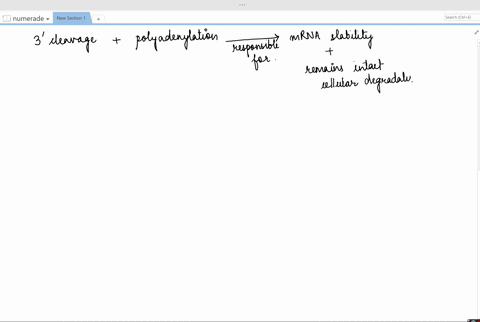 ...
numerade
New Section 1
+
Search (Ctrl+E)
3' cleavage + polyadenylation responsible for. mRNA stability
+
remains intact
cellular degradatn.